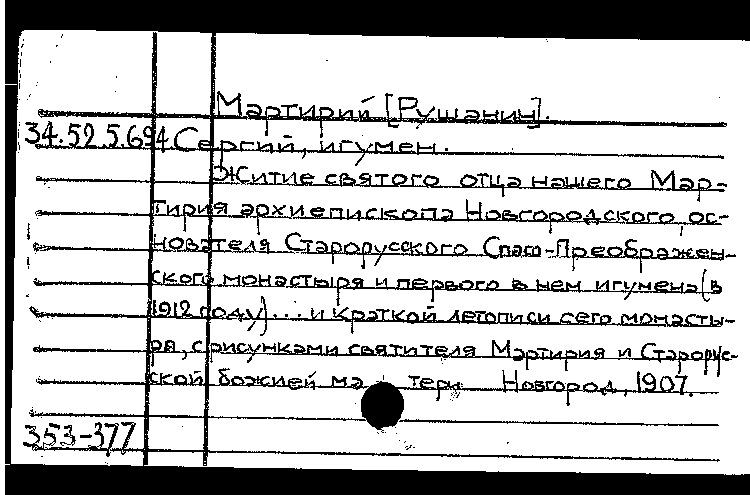 Мартирий [Рушанин].
34.52.5.694 Сергий, игумен.
Житие святого отца нашего Мар-
тирия архиепископа Новгородского, ос-
нователя Старорусского Спасо-Преображен-
ского монастыря и первого в нем игумена (в
1912 году)... и краткой летописи сего монасты-
ря, с рисунками святителя Мартирия и Старорус-
ской божией матери Новгород, 1907.
353-377